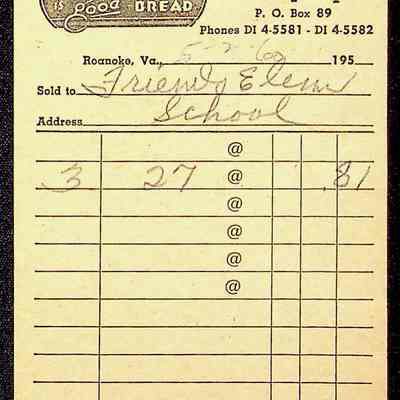 IS good BREAD
P. O. Box 89
Phones DI 4-5581 - DI 4-5582
Roanoke, Va., 5-2-60 195
Sold to Friends Elem
Address School
@
3 27 @ .81
@
@
@
@